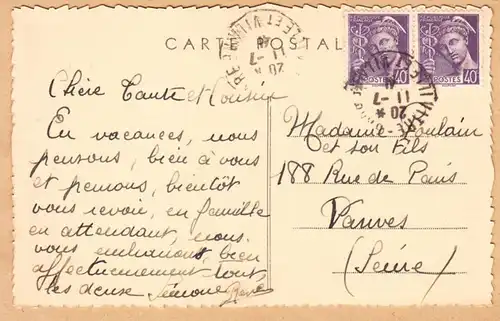 CARTE POSTALE
POSTES 40
POSTES 40
VITRÉ
20 * 11-7
Chère Tante et Cousin
En vacances, nous
pensons, bien à vous
et pensons, bientôt
vous revoir, en famille
en attendant, nous
vous embrassons bien
affectueusement tous,
les deux Simone René
Madame Poulain
et son Fils
188 Rue de Paris
Vanves
(Seine)